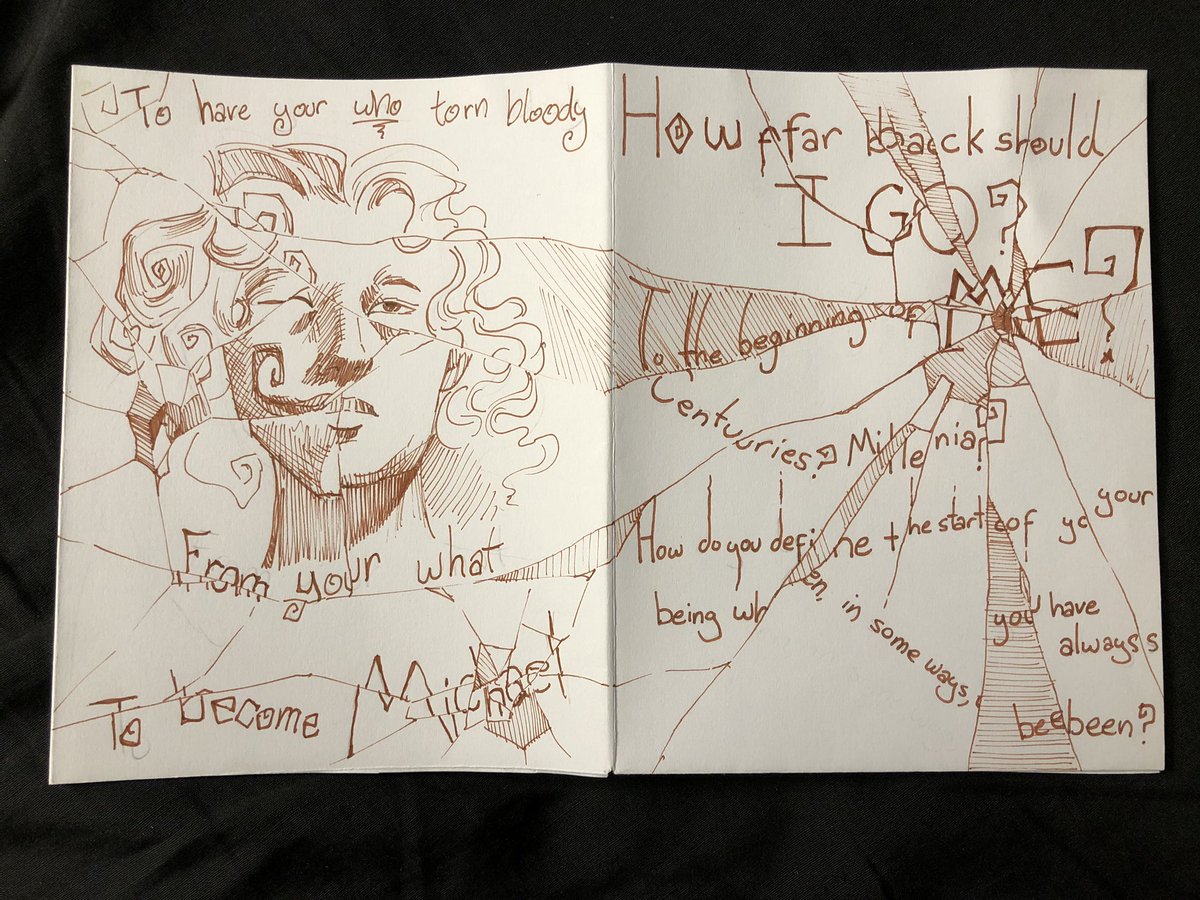 To have your who torn bloody
From your what
To become Michael
How ffar back should
I GO?
To the beginning of ME?
Centuuries? Millenia?
How do you define the start of yo your
being when, in some ways, you have
always s
beebeen?